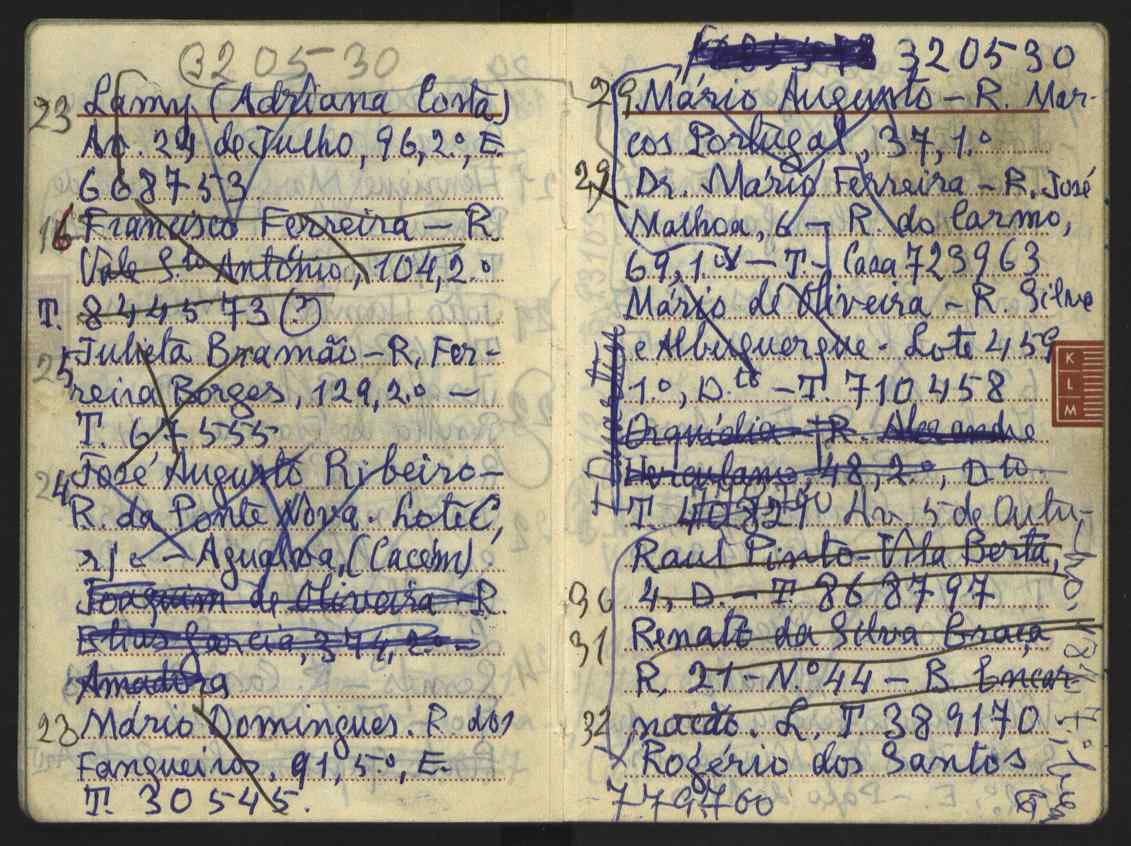 320530
23 Lamy (Adriana Costa)
Av. 24 de Julho, 96, 2.º, E.
668753
16 Francisco Ferreira — R.
Vale S.to António, 104, 2.º
T. 8444573 (?)
25 Julieta Bramão — R. Fer-
reira Borges, 129, 2.º —
T. 67555
24 José Augusto Ribeiro —
R. da Ponte Nova. Lote C,
r/c — Agualva, (Cacém)
Joaquim de Oliveira — R.
Elias Garcia, 374, 2.º —
Amadora
23 Mário Domingues. R. dos
Fanqueiros, 91, 5.º, E.
T. 30545.
320530
29 Mário Augusto — R. Mar-
cos Portugal, 37, 1.º
29 Dr. Mário Ferreira — R. José
Malhoa, 6 — R. do Carmo,
69, 1.º — T. Casa 723963
Mário de Oliveira — R. Silva
e Albuquerque. Lote 459
1.º, D.to — T. 710458
Orquídia — R. Alexandre
Herculano, 48, 2.º, D.to
T. Av. 5 de Outu-
bro,
Raul Pinto — Vila Berta,
30 4, D. — T. 868797
31 Renato da Silva Graça
R. 21 — N.º 44 — R. Encar-
32 nação. L. T. 389170
Rogério dos Santos
779760
KLM